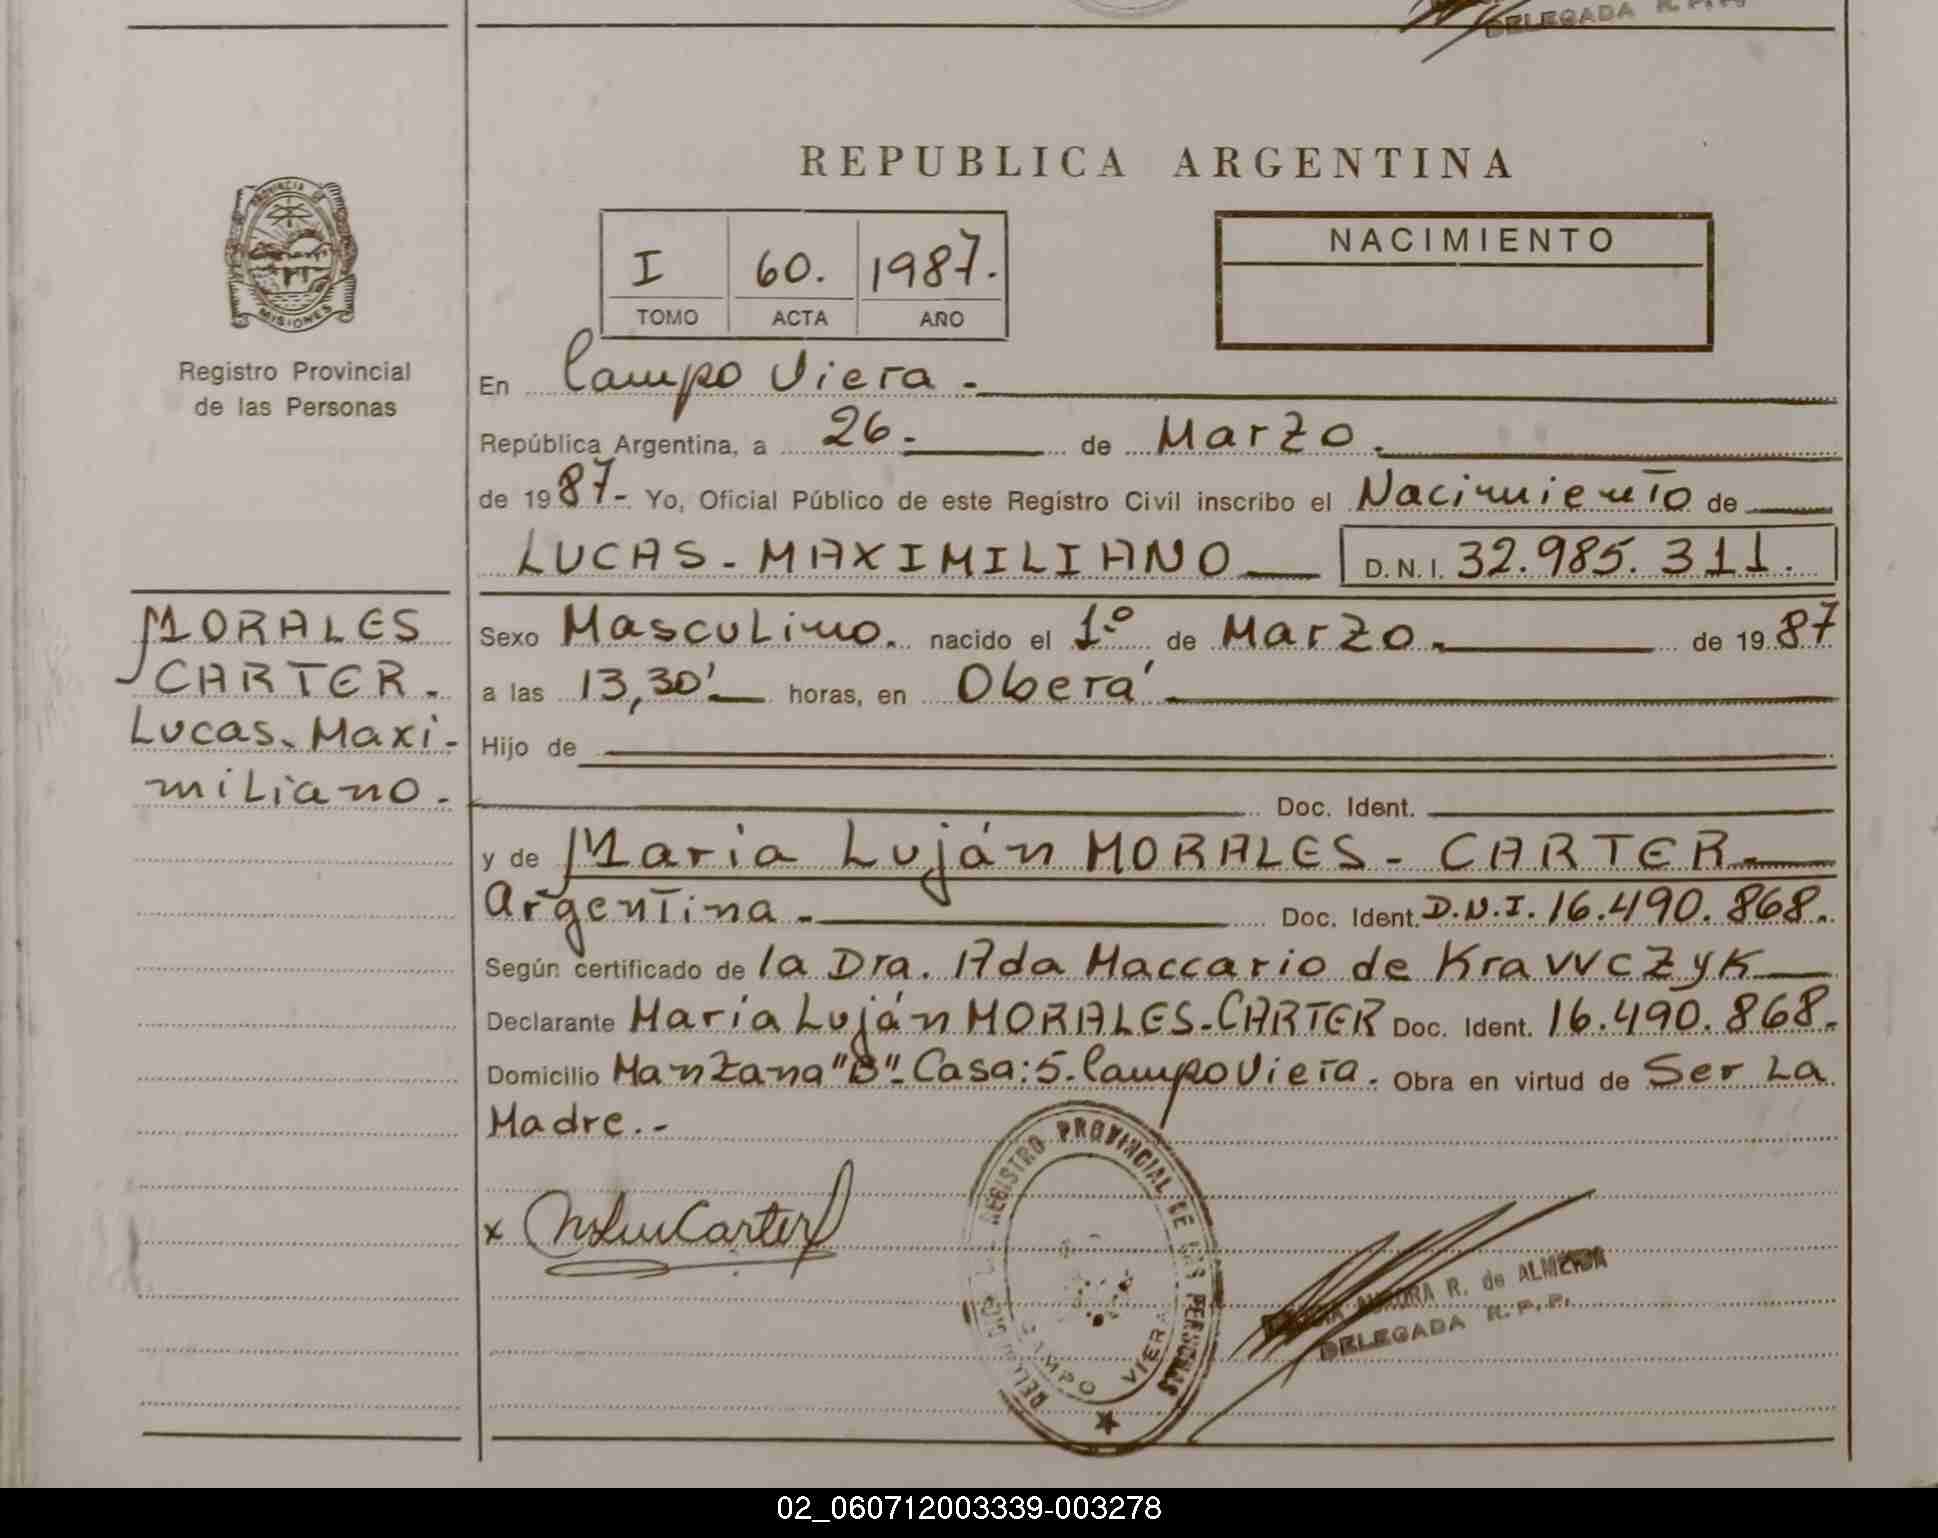 DELEGADA R.P.P.
REPUBLICA ARGENTINA
PROVINCIA DE
MISIONES
Registro Provincial
de las Personas
I 60. 1987.
TOMO ACTA AÑO
NACIMIENTO
En Campo Viera.
República Argentina, a 26. de Marzo.
de 1987- Yo, Oficial Público de este Registro Civil inscribo el Nacimiento de
LUCAS-MAXIMILIANO D.N.I. 32.985.311.
MORALES
CARTER.
Lucas-Maxi-
miliano.
Sexo Masculino. nacido el 1º de Marzo. de 1987
a las 13,30' horas, en Oberá
Hijo de
Doc. Ident.
y de Maria Luján MORALES-CARTER
Argentina. Doc. Ident. D.N.I. 16.490.868.
Según certificado de la Dra. Ada Maccario de Krawczyk
Declarante María Luján MORALES-CARTER Doc. Ident. 16.490.868.
Domicilio Manzana "B". Casa: 5. Campo Viera. Obra en virtud de Ser La
Madre.-
REGISTRO PROVINCIAL DE LAS PERSONAS
CAMPO VIERA
x Carter
AURORA R. de ALMEIDA
DELEGADA R.P.P.
02_060712003339-003278